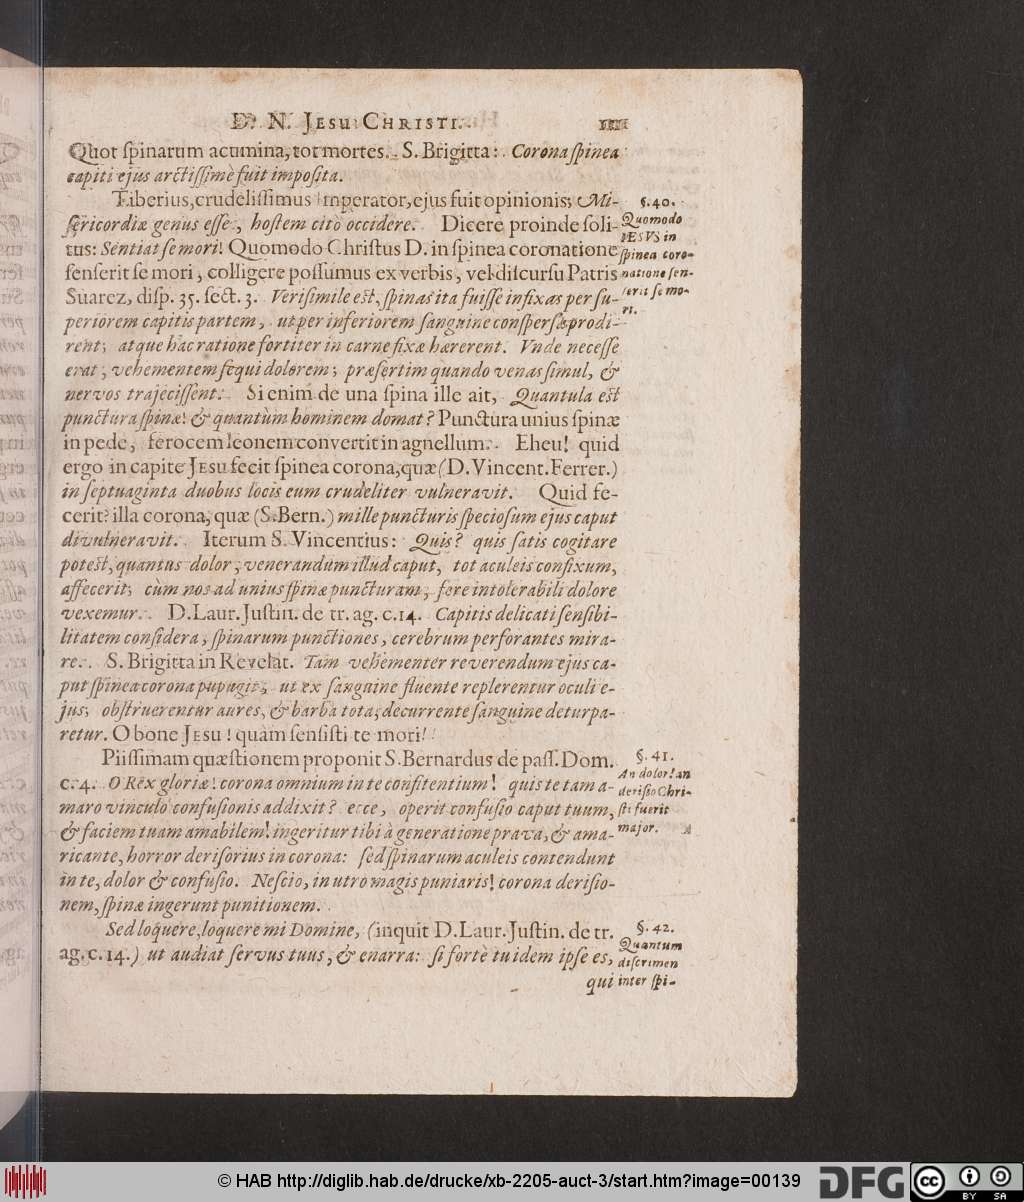 D. N. JESU CHRISTI.
Quot ſpinarum acumina, tot mortes. S. Brigitta: Corona ſpinea
capiti ejus arctiſſimè fuit impoſita.
Tiberius, crudeliſſimus Imperator, ejus fuit opinionis; Mi-
ſericordiæ genus eſſe, hoſtem citò occidere. Dicere proinde ſoli-
tus: Sentiat ſe mori! Quomodo Chriſtus D. in ſpinea coronatione
ſenſerit ſe mori, colligere poſſumus ex verbis, vel diſcurſu Patris
Suarez, diſp. 35. ſect. 3. Veriſimile eſt, ſpinas ita fuiſſe infixas per ſu-
periorem capitis partem, ut per inferiorem ſanguine conſperſæ prodi-
rent; atque hac ratione fortiter in carne fixæ hærerent. Vnde neceſſe
erat, vehementem ſequi dolorem; præſertim quando venas ſimul, &
nervos trajeciſſent. Si enim de una ſpina ille ait, Quantula eſt
punctura ſpinæ! & quantùm hominem domat? Punctura unius ſpinæ
in pede, ferocem leonem convertit in agnellum. Eheu! quid
ergo in capite JESU fecit ſpinea corona, quæ (D. Vincent. Ferrer.)
in ſeptuaginta duobus locis eum crudeliter vulneravit. Quid fe-
cerit? illa corona, quæ (S. Bern.) mille puncturis ſpecioſum ejus caput
divulneravit. Iterum S. Vincentius: Quis? quis ſatis cogitare
poteſt, quantus dolor, venerandum illud caput, tot aculeis confixum,
affecerit; cùm nos ad unius ſpinæ puncturam, fere intolerabili dolore
vexemur. D. Laur. Juſtin. de tr. ag. c. 14. Capitis delicati ſenſibi-
litatem conſidera, ſpinarum punctiones, cerebrum perforantes mira-
re. S. Brigitta in Revelat. Tam vehementer reverendum ejus ca-
put ſpinea corona pupugit, ut ex ſanguine fluente replerentur oculi e-
jus; obſtruerentur aures, & barba tota, decurrente ſanguine deturpa-
retur. O bone JESU! quàm ſenſiſti te mori!
Piiſſimam quæſtionem proponit S. Bernardus de paſſ. Dom.
c. 4. O Rex gloriæ! corona omnium in te confitentium! quis te tam a-
maro vinculo confuſionis addixit? ecce, operit confuſio caput tuum,
& faciem tuam amabilem! ingeritur tibi à generatione prava, & ama-
ricante, horror deriſorius in corona: ſed ſpinarum aculeis contendunt
in te, dolor & confuſio. Neſcio, in utro magis puniaris! corona deriſio-
nem, ſpinæ ingerunt punitionem.
Sed loquere, loquere mi Domine, (inquit D. Laur. Juſtin. de tr.
ag. c. 14.) ut audiat ſervus tuus, & enarra: ſi fortè tu idem ipſe es,
qui
§. 40.
Quomodo
IESVS in
ſpinea coro-
natione ſen-
ſerit ſe mo-
ri.
§. 41.
An dolor! an
deriſio Chri-
ſti fuerit
major.
§. 42.
Quantum
diſcrimen
inter ſpi-
© HAB http://diglib.hab.de/drucke/xb-2205-auct-3/start.htm?image=00139
DFG
cc BY SA